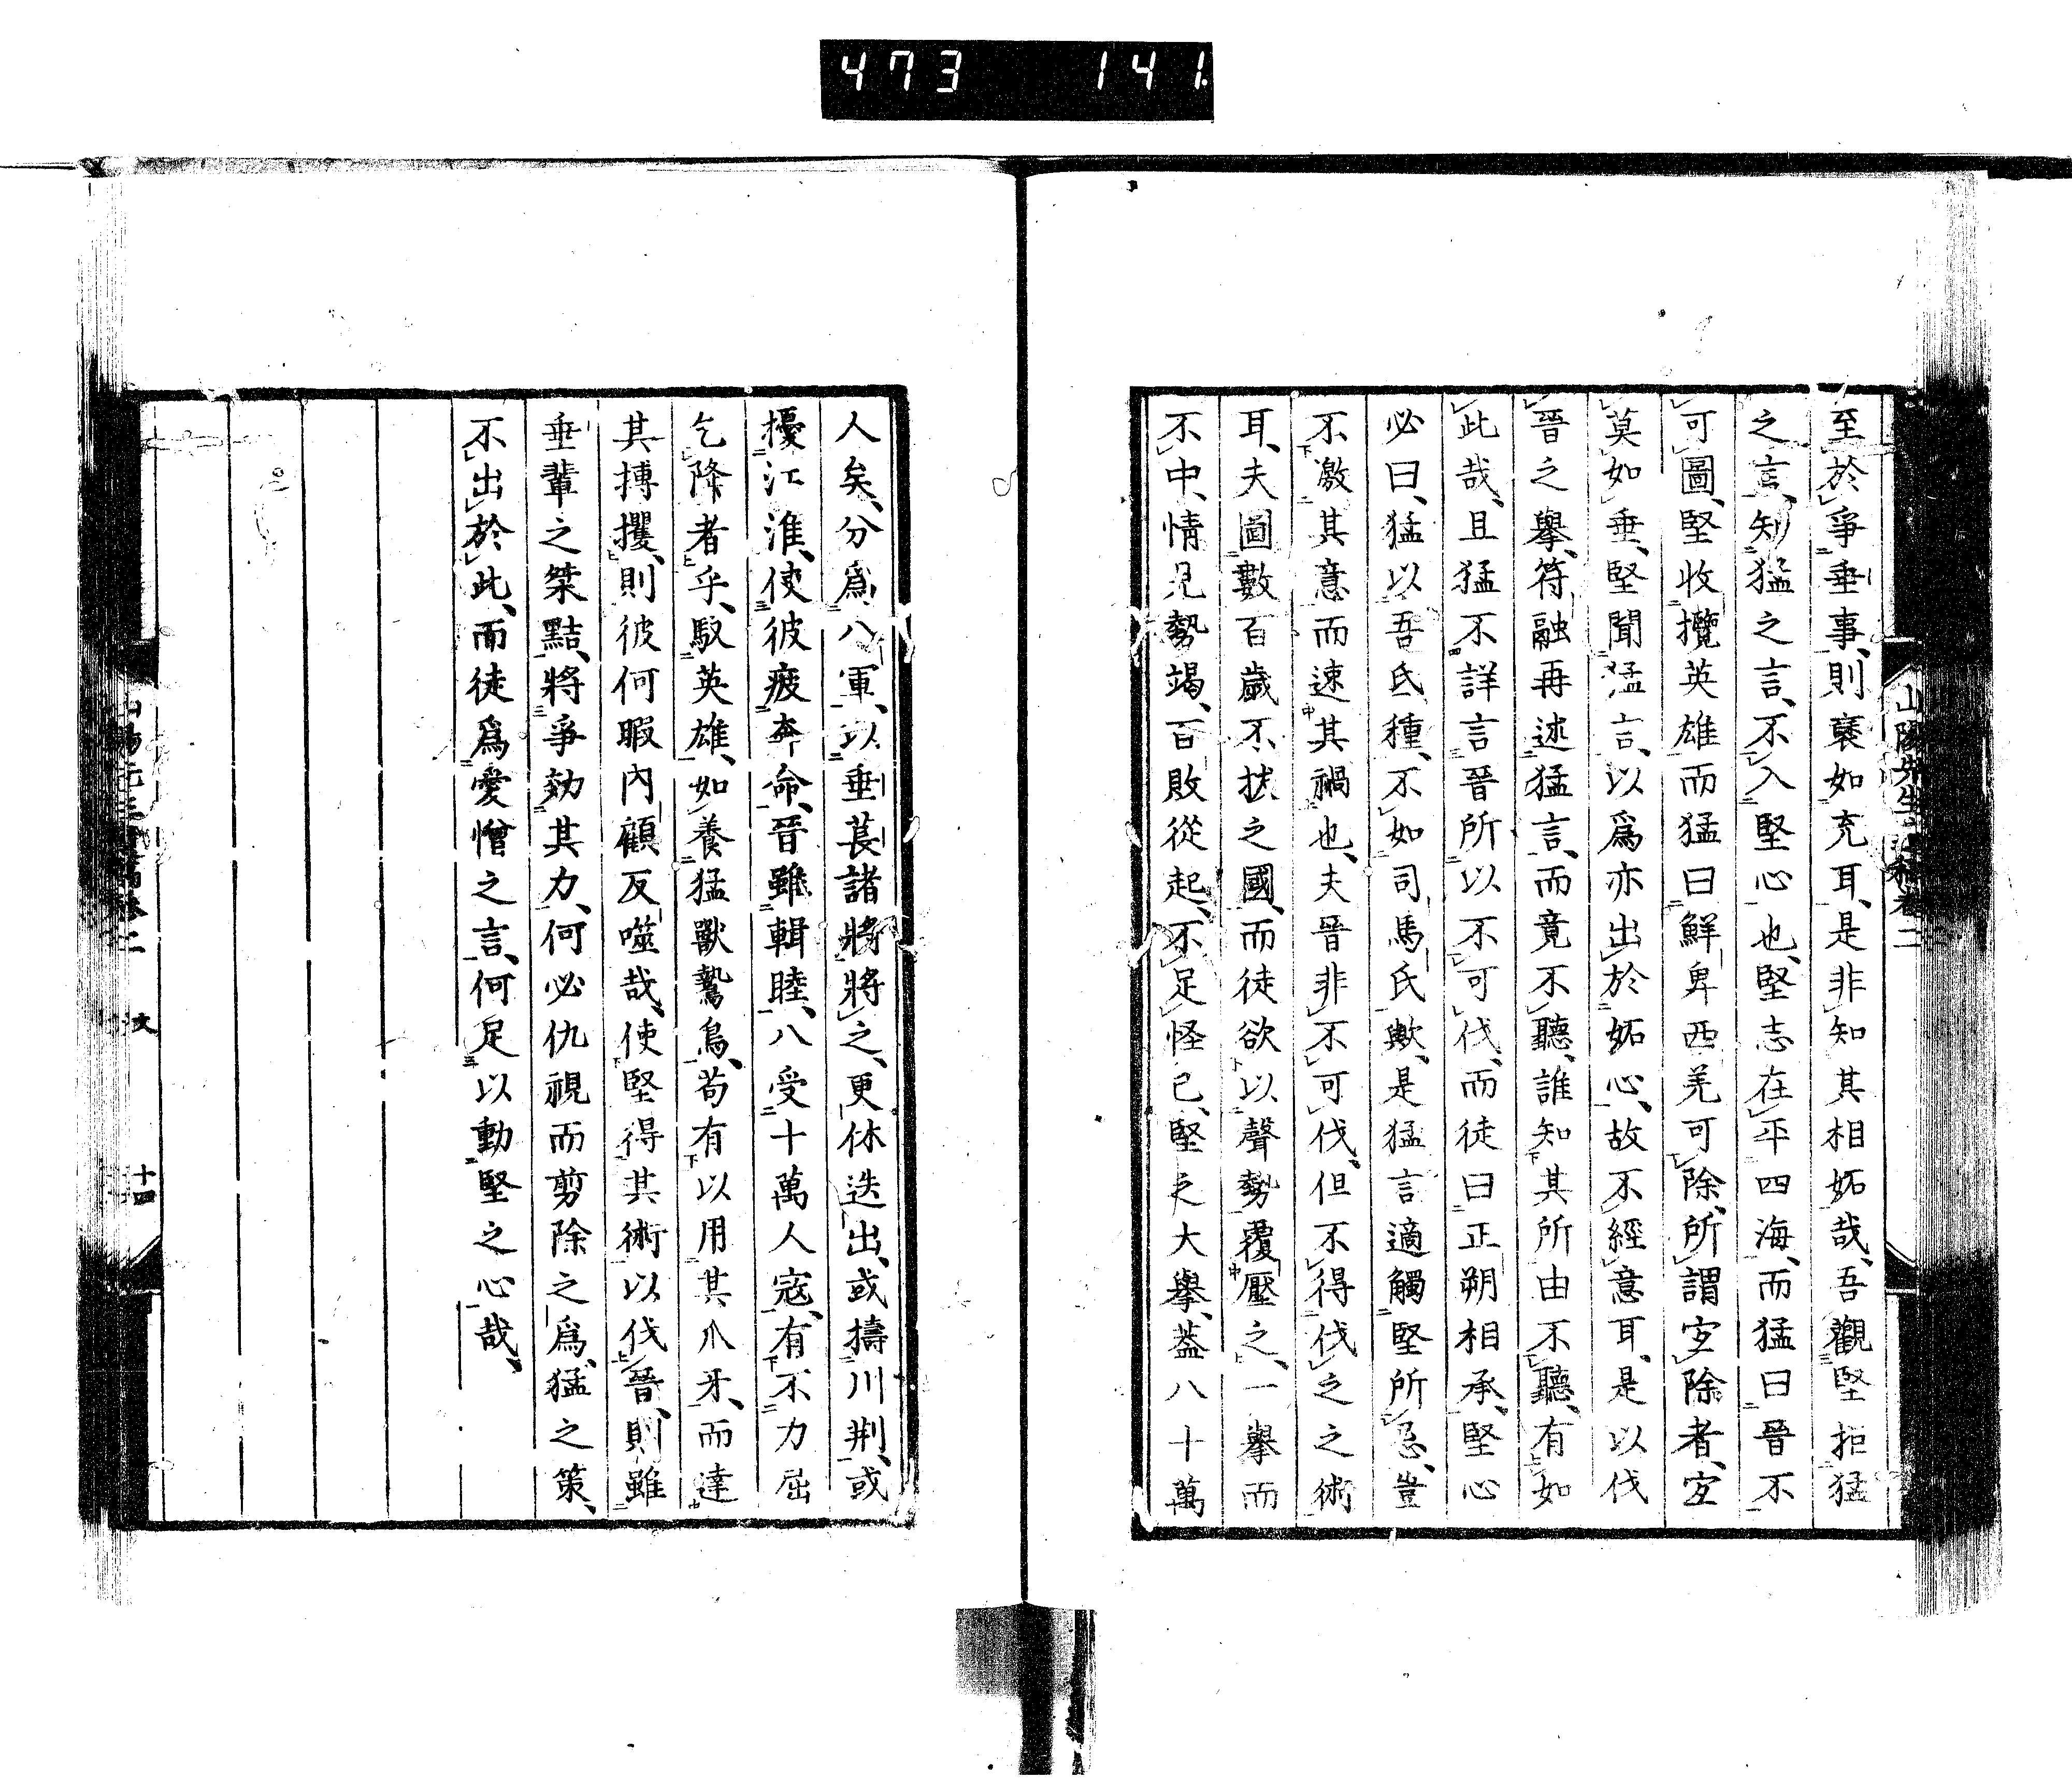 473 141
至於爭垂事、則襃如充耳、是非知其相妬哉、吾觀堅拒猛
之言、知猛之言、不入堅心也、堅志在平四海、而猛曰晉不
可圖、堅收攬英雄而猛曰鮮卑西羌可除、所謂宜除者、宜
莫如垂、堅聞猛言、以爲亦出於妬心、故不經意耳、是以伐
晉之擧、符融再述猛言、而竟不聽、誰知其所由不聽、有如
此哉、且猛不詳言晉所以不可伐、而徒曰正朔相承、堅心
必曰、猛以吾氐種、不如司馬氏歟、是猛言適觸堅所忌、豈
不激其意而速其禍也、夫晉非不可伐、但不得伐之之術
耳、夫圖數百歲不拔之國、而徒欲以聲勢覆壓之、一擧而
不中、情見勢竭、百敗從起、不足怪已、堅之大擧、蓋八十萬
人矣、分爲八軍、以垂萇諸將將之、更休迭出、或擣川荊、或
擾江淮、使彼疲奔命、晉雖輯睦、八受十萬人寇、有不力屈
乞降者乎、馭英雄、如養猛獸鷙鳥、苟有以用其爪牙、而達
其搏攫、則彼何暇內顧反噬哉、使堅得其術以伐晉、則雖
垂輩之桀黠、將爭効其力、何必仇視而剪除之爲、猛之策、
不出於此、而徒爲愛憎之言、何足以動堅之心哉、
文
十四